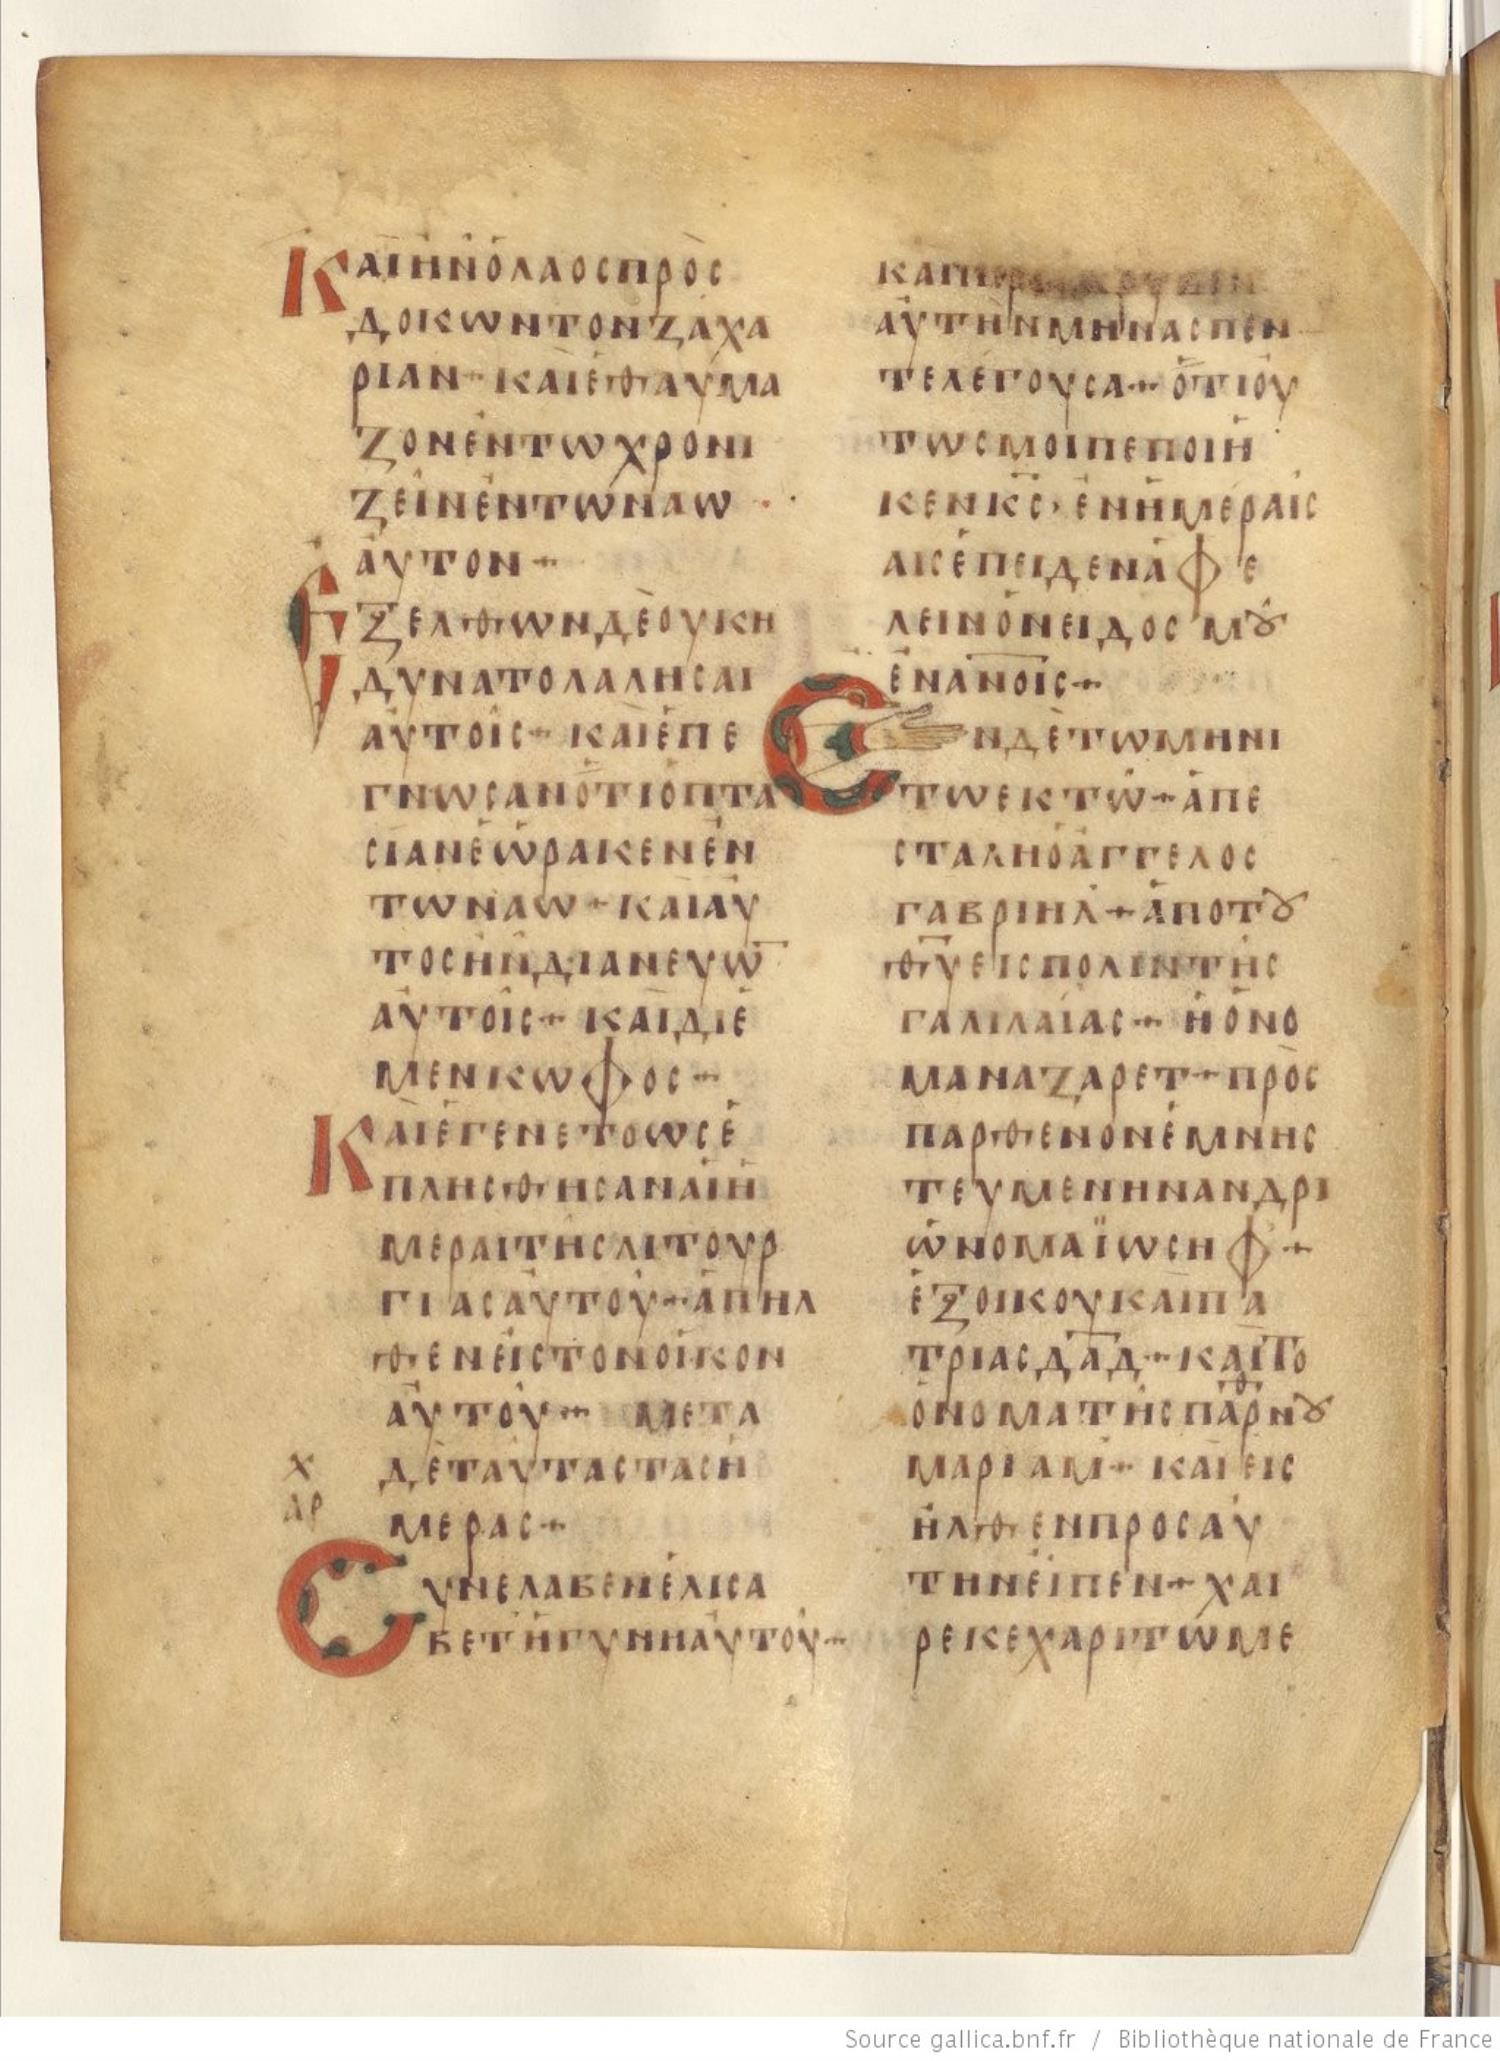 ΚΑΙΗΝΟΛΑΟCΠΡΟC
ΔΟΚΩΝΤΟΝΖΑΧΑ
ΡΙΑΝ+ΚΑΙΕΘΑΥΜΑ
ΖΟΝΕΝΤΩΧΡΟΝΙ
ΖΕΙΝΕΝΤΩΝΑΩ
ΑΥΤΟΝ+
ΕΞΕΛΘΩΝΔΕΟΥΚΗ
ΔΥΝΑΤΟΛΑΛΗCΑΙ
ΑΥΤΟΙC+ΚΑΙΕΠΕ
ΓΝΩCΑΝΟΤΙΟΠΤΑ
CΙΑΝΕΩΡΑΚΕΝΕΝ
ΤΩΝΑΩ+ΚΑΙΑΥ
ΤΟCΗΝΔΙΑΝΕΥΩ̅
ΑΥΤΟΙC+ΚΑΙΔΙΕ
ΜΕΝΚΩΦΟC+
ΚΑΙΕΓΕΝΕΤΟΩCΕ
ΠΛΗCΘΗCΑΝΑΙΗ
ΜΕΡΑΙΤΗCΛΙΤΟΥΡ
ΓΙΑCΑΥΤΟΥ+ΑΠΗΛ
ΘΕΝΕΙCΤΟΝΟΙΚΟΝ
ΑΥΤΟΥ+ ΜΕΤΑ
ΔΕΤΑΥΤΑCΤΑCΗ
ΜΕΡΑC+
Χ
ΑΡ
CΥΝΕΛΑΒΕΝΕΛΙCΑ
ΒΕΤΗΓΥΝΗΑΥΤΟΥ+
ΑΥΤΗΝΜΗΝΑCΠΕΝ
ΤΕΛΕΓΟΥCΑ+ΟΤΙΟΥ
ΤΩCΜΟΙΠΕΠΟΙΗ
ΚΕΝΚ̅C̅·ΕΝΗΜΕΡΑΙC
ΑΙCΕΠΕΙΔΕΝΑΦΕ
ΛΕΙΝΟΝΕΙΔΟCΜȢ
ΕΝΑΝ̅Ο̅Ι̅C+
ΕΝΔΕΤΩΜΗΝΙ
ΤΩΕΚΤΩ+ΑΠΕ
CΤΑΛΗΟΑΓΓΕΛΟC
ΓΑΒΡΙΗΛ+ΑΠΟΤȢ
Θ̅Υ̅ΕΙCΠΟΛΙΝΤΗC
ΓΑΛΙΛΑΙΑC+ΗΟΝΟ
ΜΑΝΑΖΑΡΕΤ+ΠΡΟC
ΠΑΡΘΕΝΟΝΕΜΝΗC
ΤΕΥΜΕΝΗΝΑΝΔΡΙ
ΩΝΟΜΑΪΩCΗΦ+
ΕΞΟΙΚΟΥΚΑΙΠΑ
ΤΡΙΑCΔ̅Α̅Δ̅+ΚΑΙΤΟ
ΟΝΟΜΑΤΗCΠΑΡΘΝȢ
ΜΑΡΙΑΜ+ΚΑΙΕΙC
ΗΛΘΕΝΠΡΟCΑΥ
ΤΗΝΕΙΠΕΝ+ΧΑΙ
ΡΕΚΕΧΑΡΙΤΩΜΕ
Source gallica.bnf.fr / Bibliothèque nationale de France